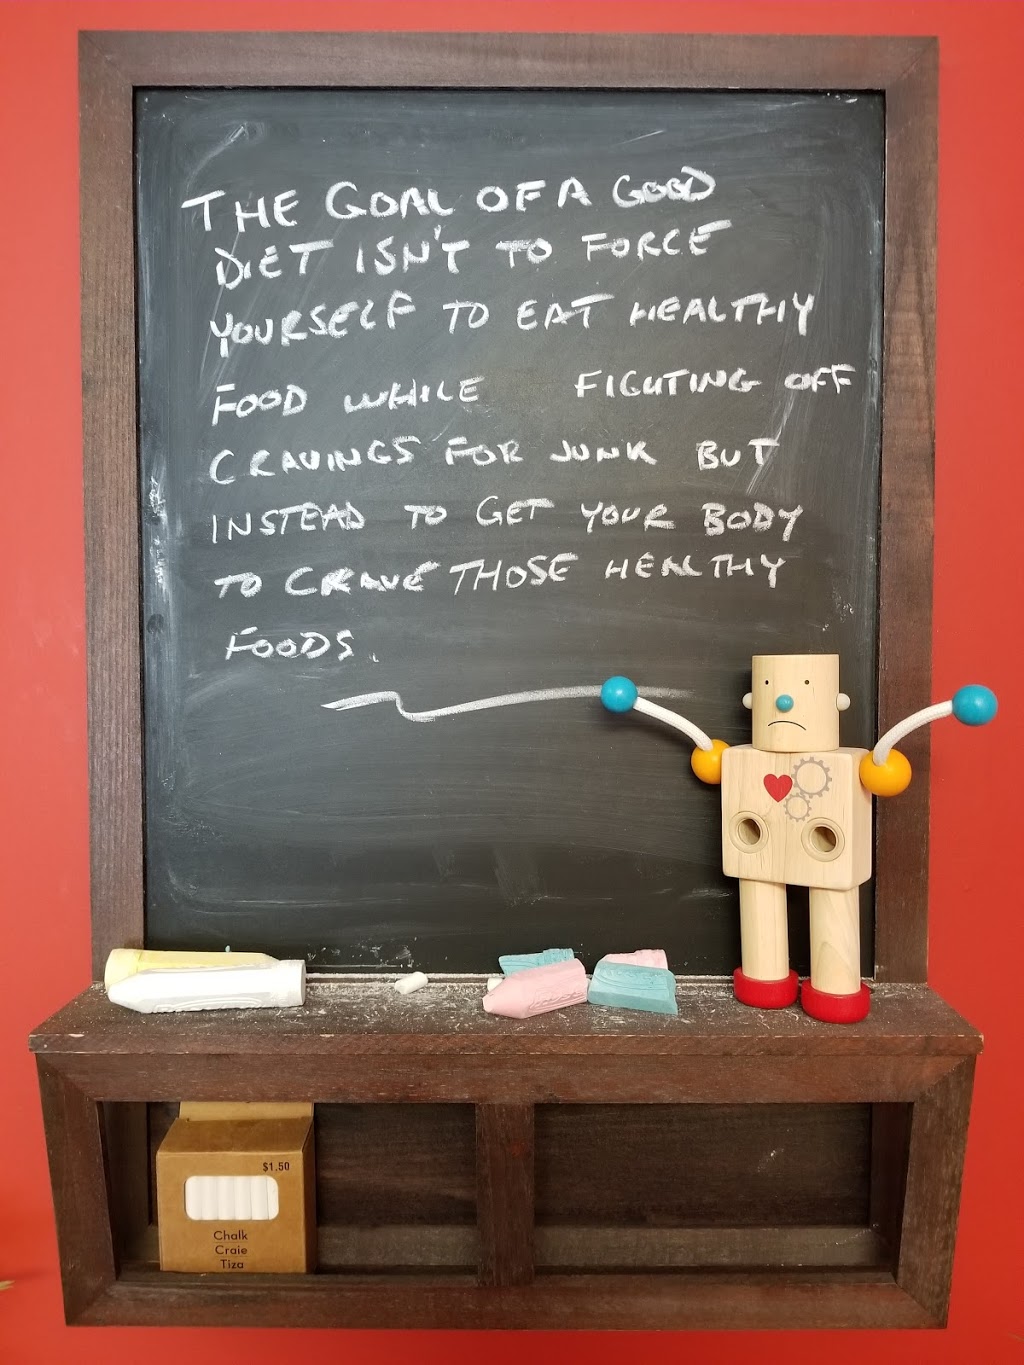 THE GOAL OF A GOOD
DIET ISN'T TO FORCE
YOURSELF TO EAT HEALTHY
FOOD WHILE FIGHTING OFF
CRAVINGS FOR JUNK BUT
INSTEAD TO GET YOUR BODY
TO CRAVE THOSE HEALTHY
FOODS.
$1.50
Chalk
Craie
Tiza